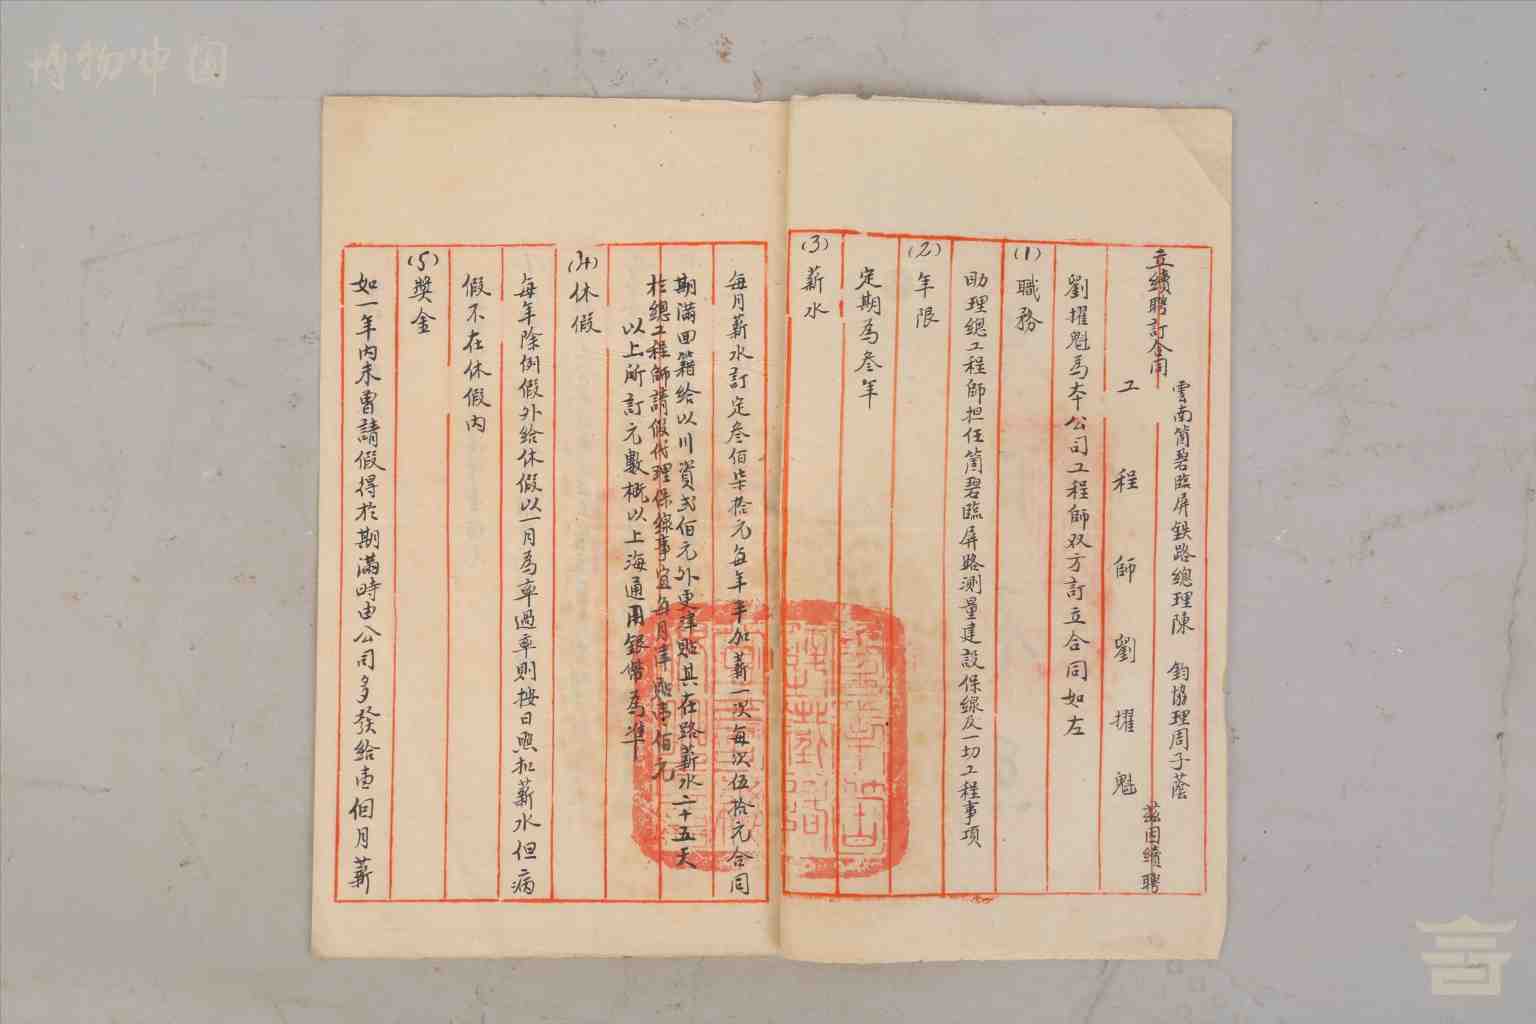 立續聘訂合同
雲南箇碧臨屏鉄路總理陳 鈞協理周子蔭
工程師劉擢魁
茲因續聘
劉擢魁為本公司工程師双方訂立合同如左
(1)職務
助理總工程師担任箇碧臨屏路測量建設保線及一切工程事項
(2)年限
定期為叄年
(3)薪水
每月薪水訂定叄佰柒拾元每年年加薪一次每次伍拾元合同
期滿回籍給以川資弍佰元外更津貼其在路薪水二十五天
於總工程師請假代理保線事宜每月津貼壹佰元
以上所訂元數概以上海通用銀幣為準
(4)休假
每年除例假外給休假以一月為率過率則按日照扣薪水但病
假不在休假內
(5)獎金
如一年內未曾請假得於期滿時由公司多發給壹個月薪
博物中国